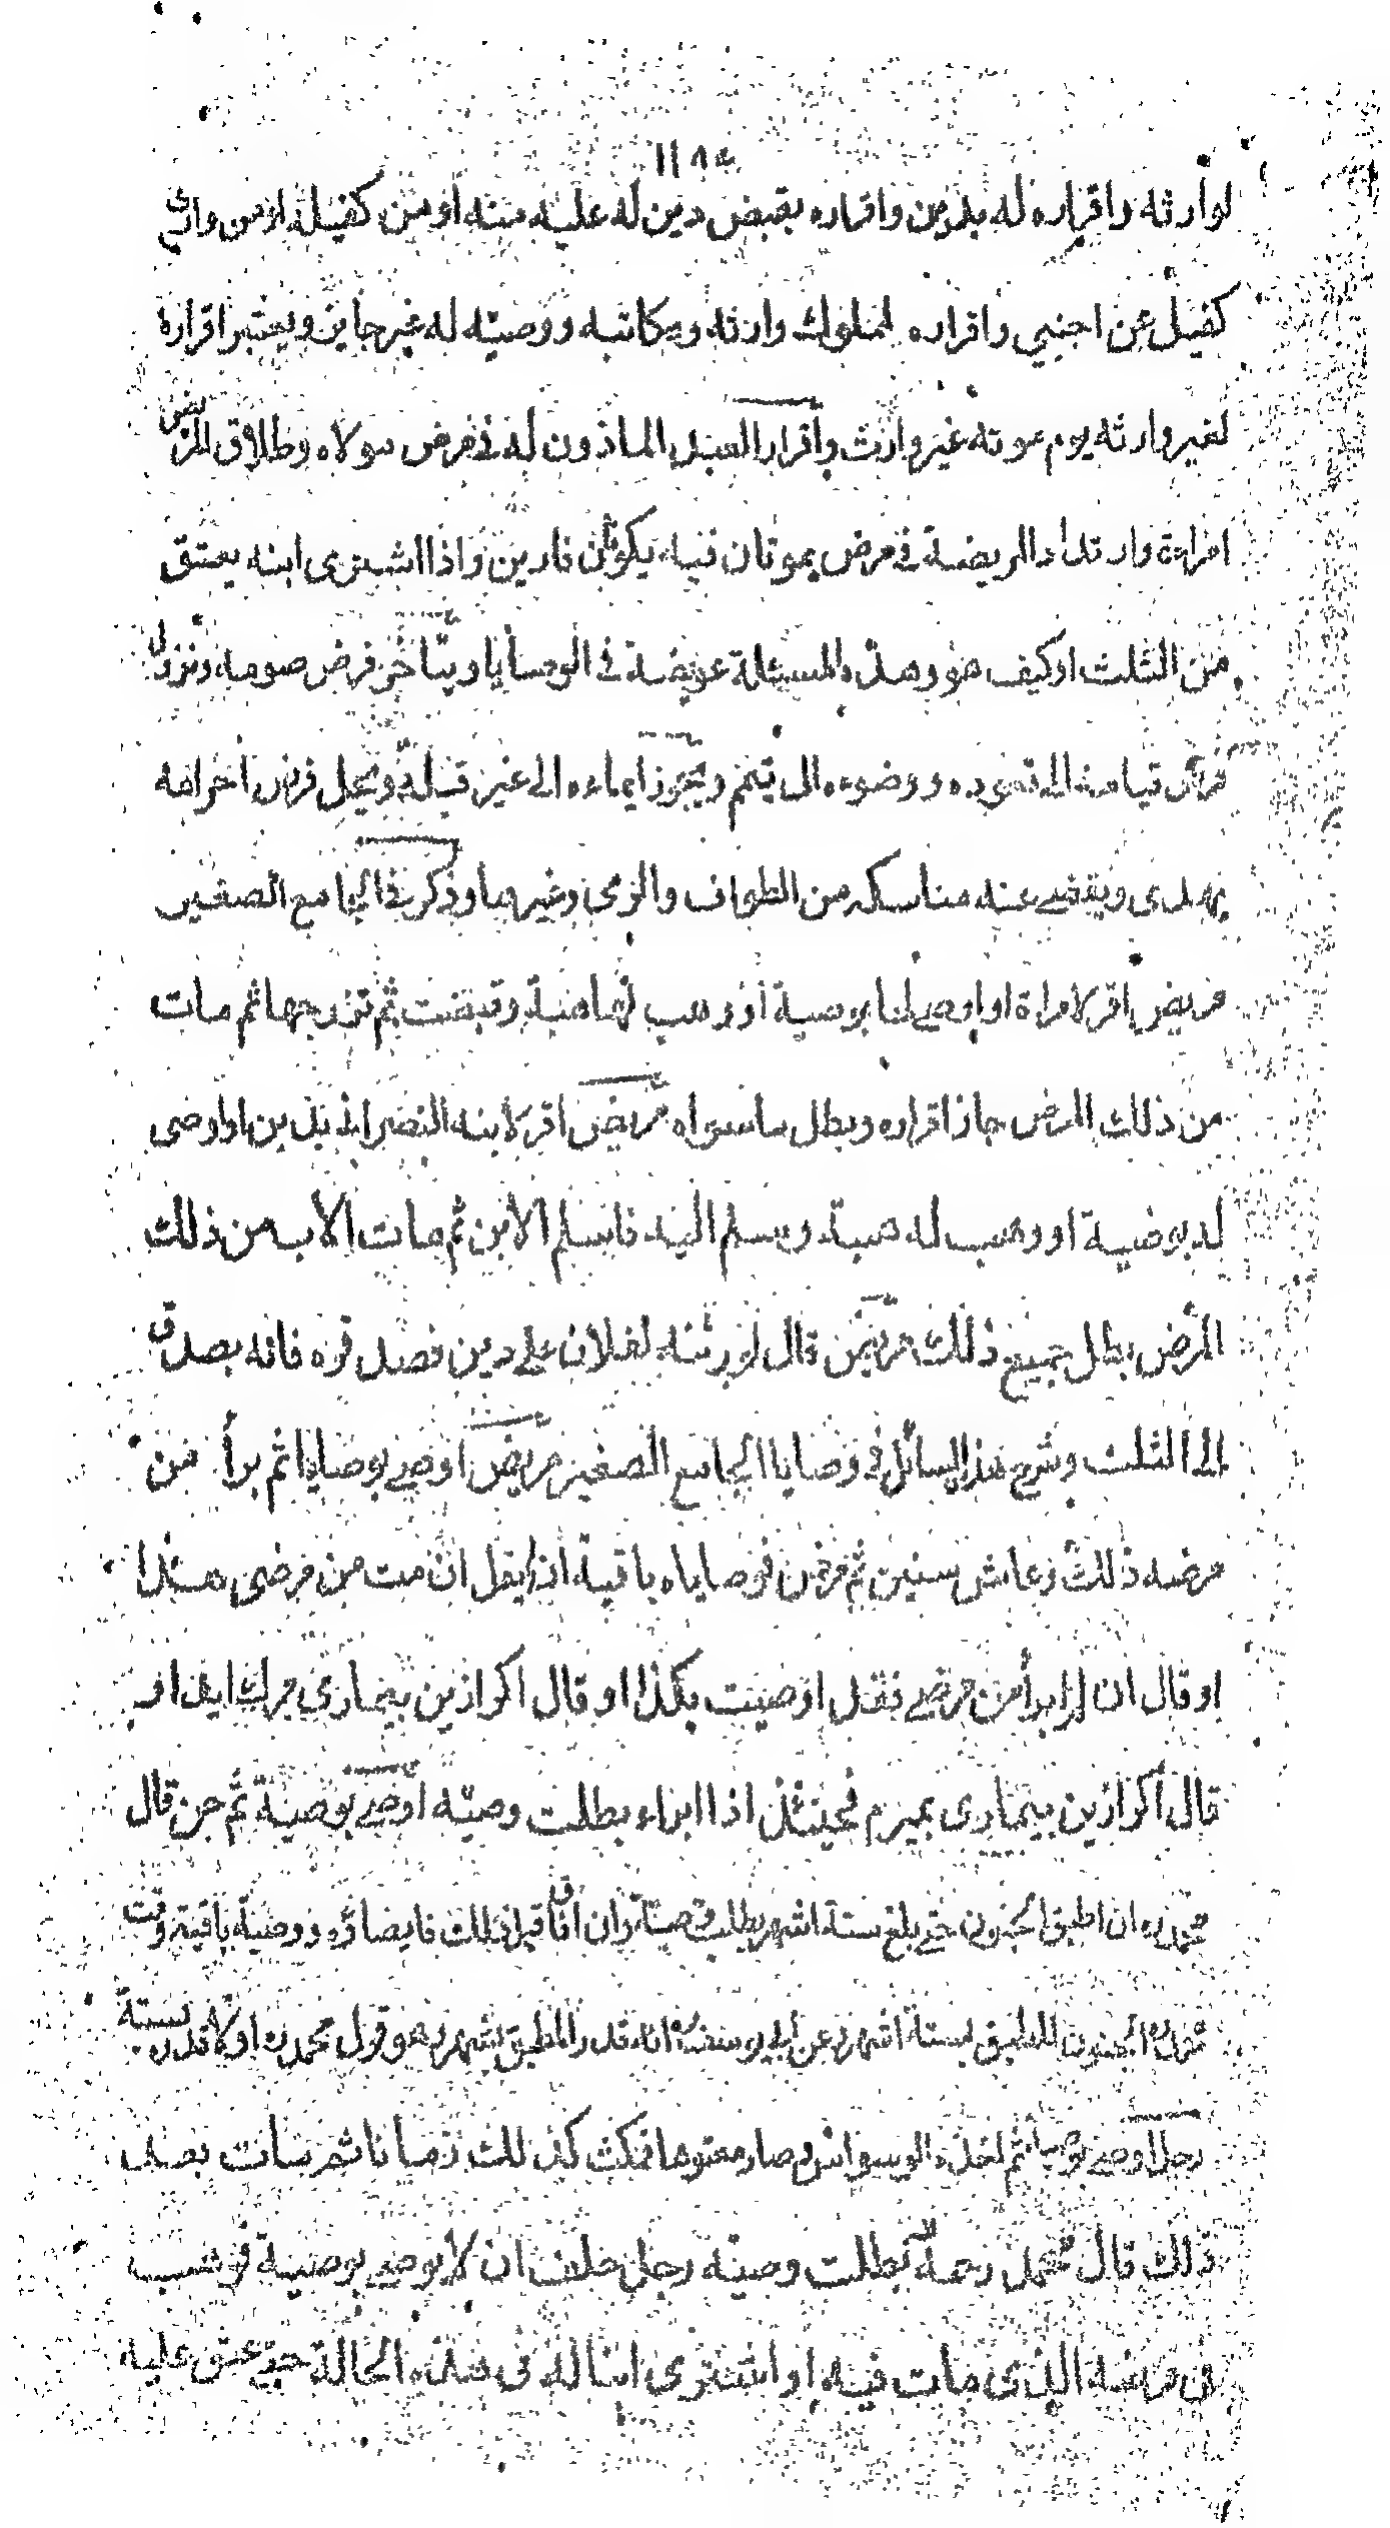 ١١٨٤
لوارثه واقراره له بدين واقراره بقبض دين له عليه منه او من كفيله او من وارث
كفيل عن اجنبي واقراره لمملوك وارثه ومكاتبه ووصيته له غير جايز ويعتبر اقراره
لغير وارثه يوم موته غير وارث واقرار العبد الماذون له في مرض مولاه وطلاق المريض
امراءة وارتداد المريضة في مرض يموتان فيه يكونان فارين واذا اشترى ابنه يعتق
من الثلث او كيف هو وهذه المسئلة عويصة في الوصايا ويتاخر فرض صومه ونزول
فرض قيامه الى قعوده ووضوءه الى تيمم ويجوز ايماءه الى غير قبلة ويحل فرض احرامه
بهدى ويقضى عنه مناسكه من الطواف والرمى وغيرهما وذكر في الجامع الصغير
مريض اقر لامراة او اوصى لها بوصية او وهب لها هبة وقبضت ثم تزوجها ثم مات
من ذلك المرض جاز اقراره وبطل ما سواه مريض اقر لابنه النصراني بدين او اوصى
له بوصية او وهب له هبة وسلم اليه فاسلم الابن ثم مات الاب من ذلك
المرض بطل جميع ذلك مريض قال لورثته لفلان على دين فصدقوه فانه يصدق
الى الثلث وشرح هذه المسائل في وصايا الجامع الصغير مريض اوصى بوصايا ثم برأ من
مرضه ذلك وعاش سنين ثم مرض فوصاياه باقية اذا لم يقل ان مت من مرضى هذا
او قال ان لم ابرأ من مرضى فقد اوصيت بكذا او قال اكر ازين بيمارى مرك ايد او
قال اكر ازين بيمارى بميرم فحينئذ اذا ابراء بطلت وصيته اوصى بوصية ثم جن قال
محمد ره ان اطبق الجنون حتى بلغ ستة اشهر بطلت وصيته وان افاق قبل ذلك فايصاؤه ووصيته باقية وقت
محمد ره الجنون المطبق بستة اشهر وعن ابي يوسف ره انه قدر المطبق بشهر وهو قول محمد ره اولا ثم قدره بستة
رجل اوصى بوصايا ثم اخذه الوسواس وصار معتوها فمكث كذلك زمانا ثم مات بعد
ذلك قال محمد رحمه الله بطلت وصيته رجل حلف ان لا يوصى بوصية فوهب
في مرضه الذى مات فيه او اشترى ابنا له في هذه الحالة حتى عتق عليه